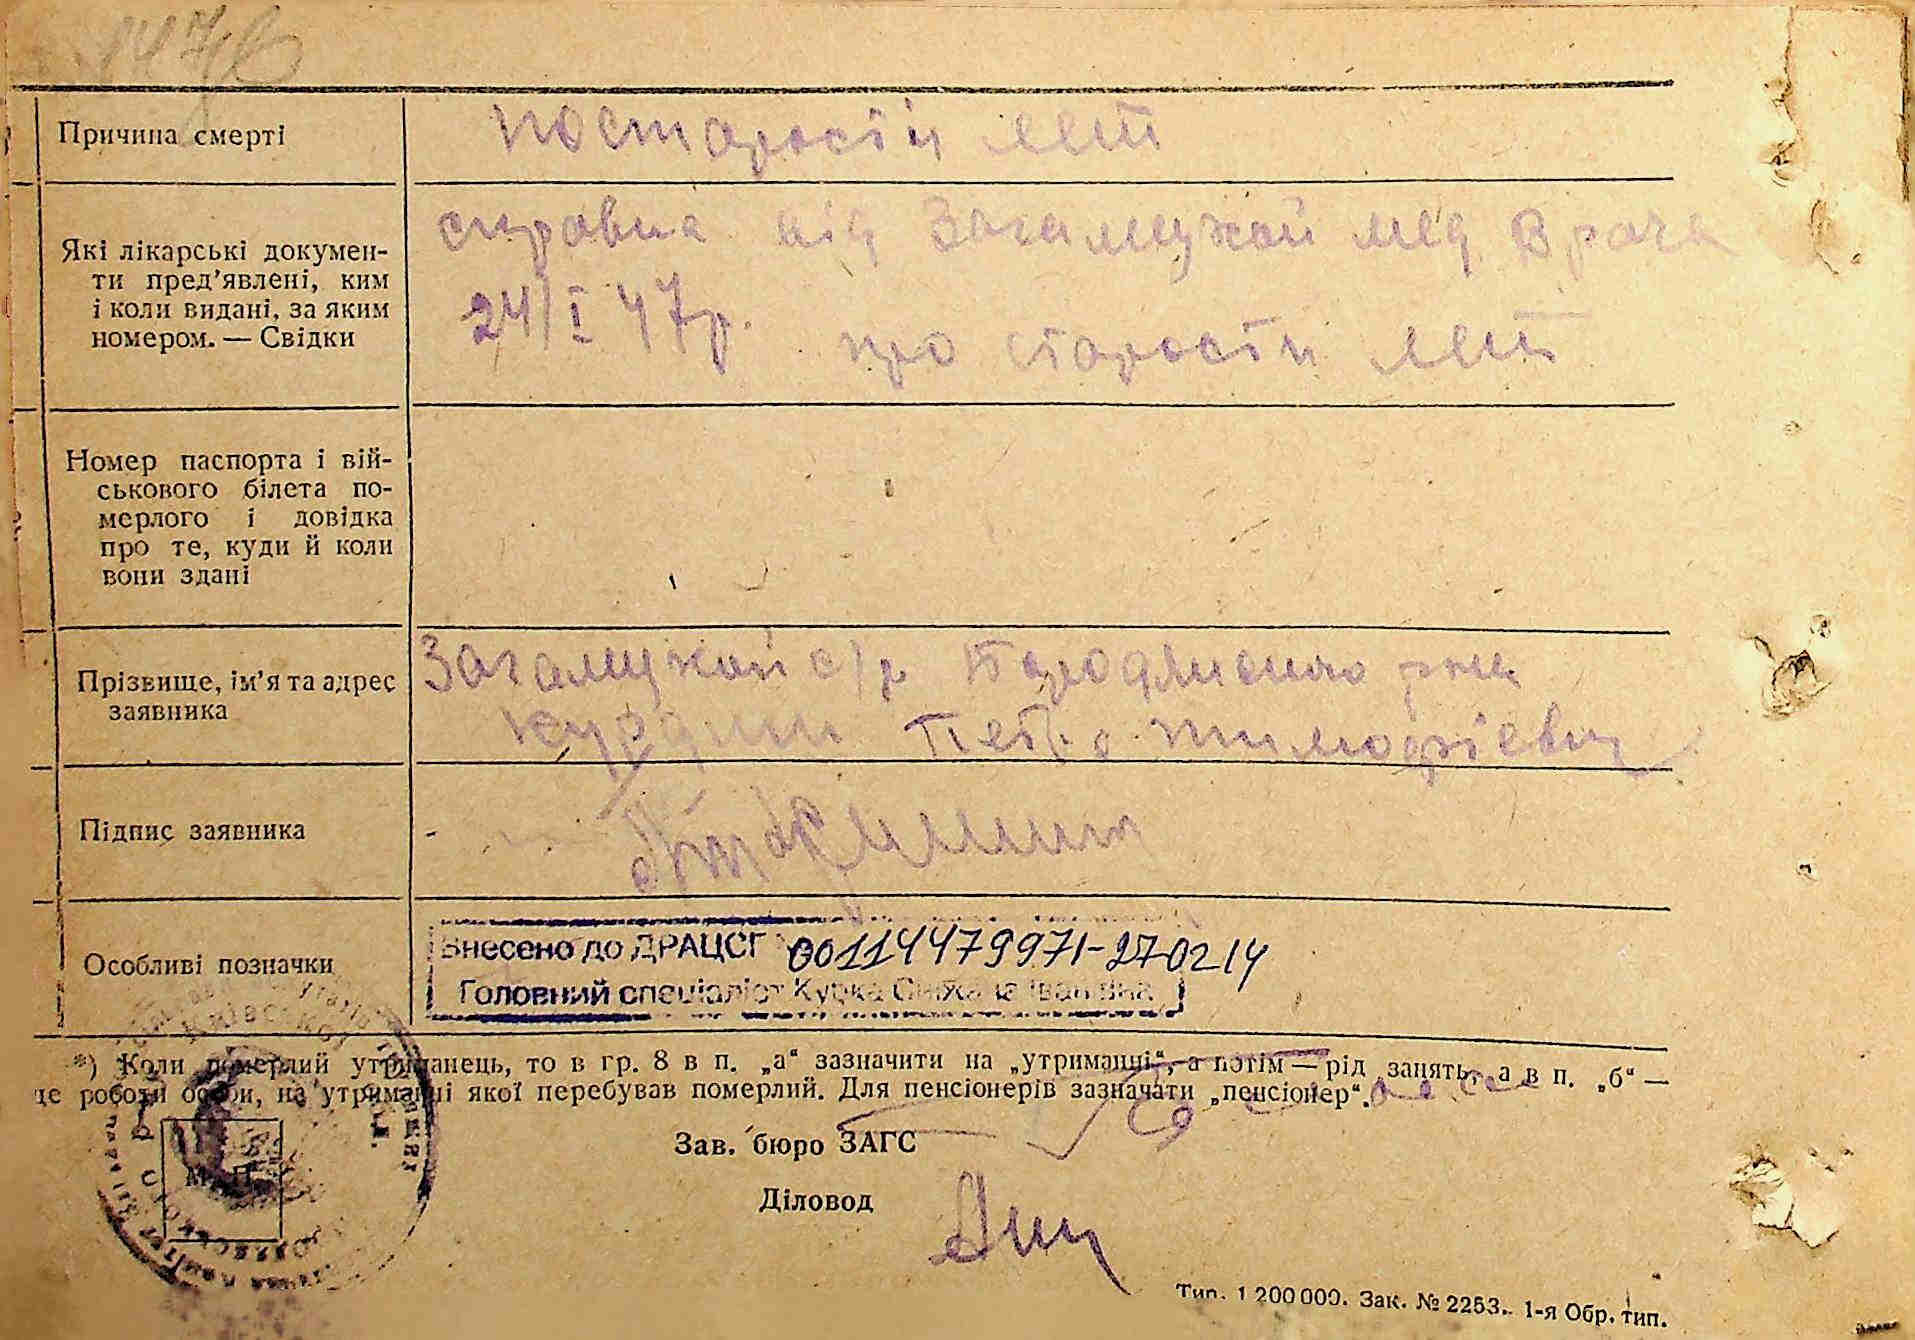 1476
Причина смерті
по старости лет
Які лікарські докумен-
ти пред'явлені, ким
і коли видані, за яким
номером. — Свідки
справка від Загальцкой мед Врача
24/I 47р. про старости лет
Номер паспорта і вій-
ськового білета по-
мерлого і довідка
про те, куди й коли
вони здані
Прізвище, ім'я та адрес
заявника
Загальцкой с/р
Петро Тимофієвич
Підпис заявника
Особливі позначки
Внесено до ДРАЦСГ 00114479971-27.02.14
Головний спеціаліст Курка Сніжана Іванівна
*) Коли померлий утриманець, то в гр. 8 в п. „а“ зазначити на „утриманні“, а потім — рід занять, а в п. „б“ —
де робози особи, на утриманні якої перебував померлий. Для пенсіонерів зазначати „пенсіонер“.
Зав. бюро ЗАГС
М. П.
Діловод
Тип. 1 200 000. Зак. № 2253. 1-я Обр. тип.